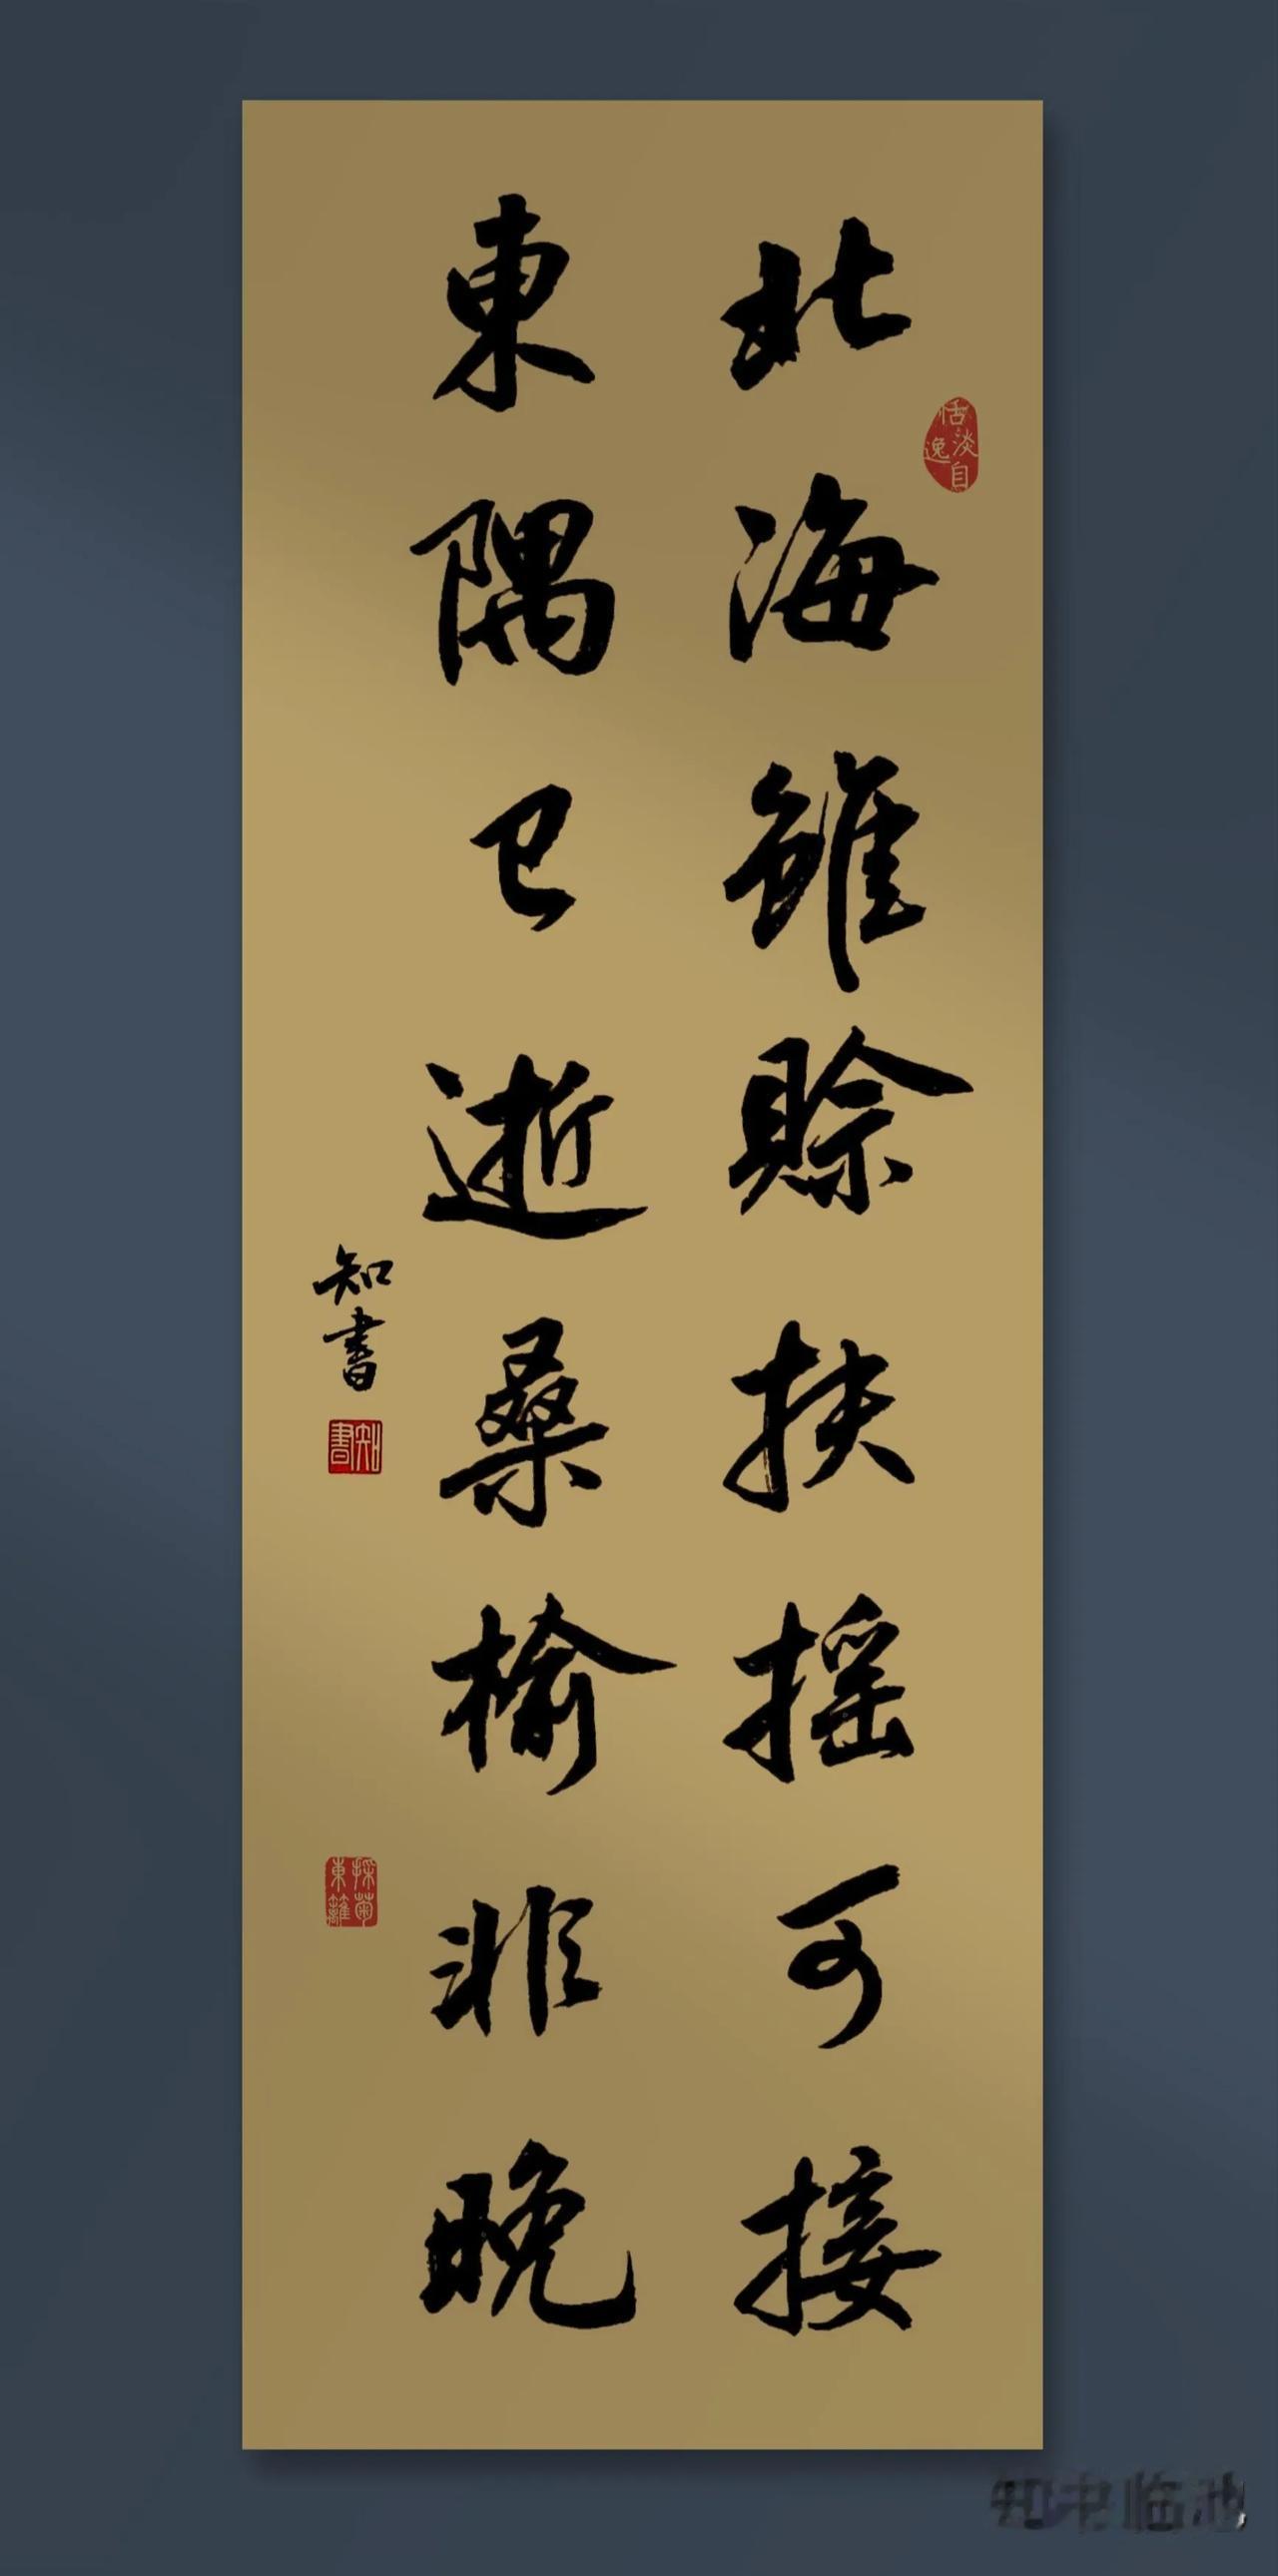 北海雖賒扶摇可接
東隅已逝桑榆非晚
知書
恬淡自逸
知書
採菊東籬
知书临池